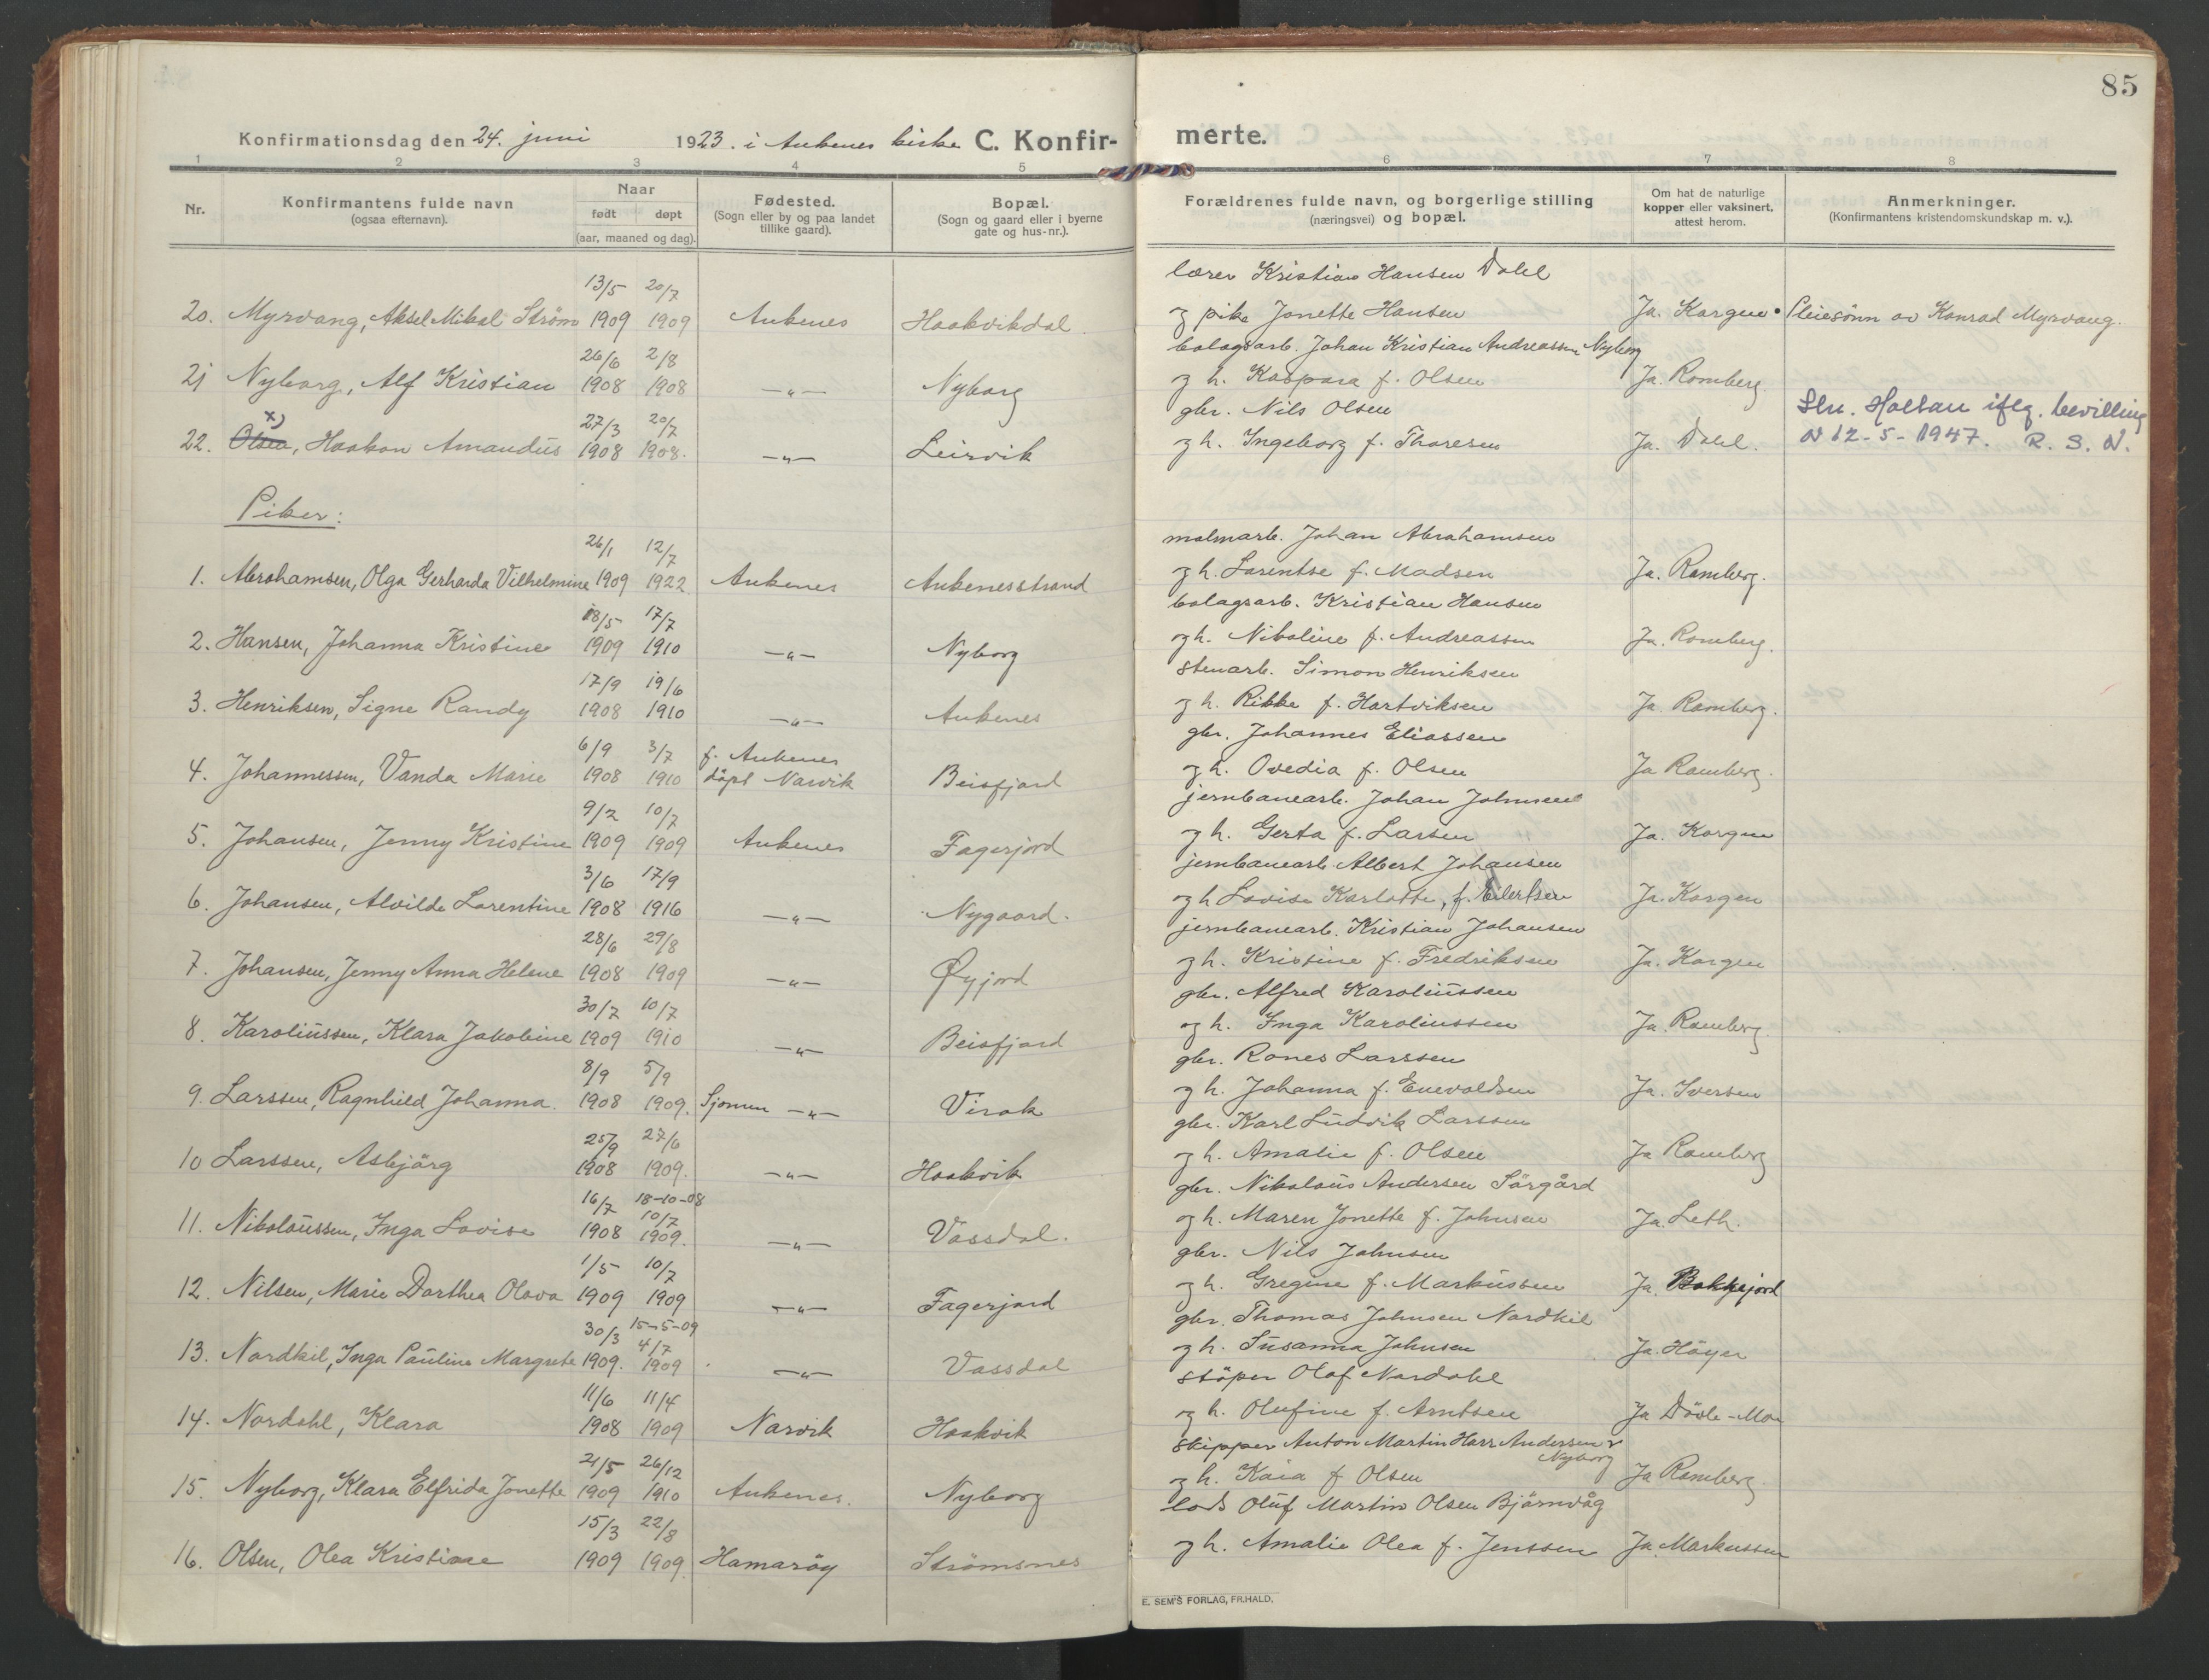 85
Konfirmationsdag den 24. juni 1923. i Ankenes kirke C. Konfirmerte.
1 2 3 4 5 6 7 8
Nr.
Konfirmantens fulde navn
(ogsaa efternavn).
Naar
født døpt
(aar, maaned og dag).
Fødested.
(Sogn eller by og paa landet
tillike gaard).
Bopæl.
(Sogn og gaard eller i byerne
gate og hus-nr.).
Forældrenes fulde navn, og borgerlige stilling
(næringsvei) og bopæl.
Om hat de naturlige
kopper eller vaksinert,
attest herom.
Anmerkninger.
(Konfirmantens kristendomskundskap m. v.).
13/5 20/7 lærer Kristian Hansen Dahl
20. Myrvang, Aksel Mikal Strøm 1909 1909 Ankenes Haakvikdal. og pike Jonette Hansen Ja. Korgen Pleiesönn av Konrad Myrvang.
26/6 2/8 bolagsarb. Johan Kristian Andreassen Nyborg
21 Nyborg, Alf Kristian 1908 1908 —"— Nyborg og h. Kaspara f. Olsen Ja. Romberg.
x) 27/3 20/7 gbr. Nils Olsen Sln. Holtan iflg. bevilling
22. Olsen, Haakon Amandus 1908 1908. —"— Leirvik og h. Ingeborg f. Thoresen Ja. Dahl. av 12-5-1947. R. S. N.
Piker:
26/1 12/7 malmarb. Johan Abrahamsen
1. Abrahamsen, Olga Gerharda Vilhelmine 1909 1922. Ankenes Ankenesstrand og h. Larentse f. Madsen Ja. Romberg.
18/5 17/7 bolagsarb. Kristian Hansen
2. Hansen, Johanna Kristine 1909 1910 —"— Nyborg og h. Nikoline f. Andreassen Ja. Romberg.
17/9 19/6 stenarb. Simon Henriksen
3. Henriksen, Signe Randy 1908 1910 —"— Ankenes og h. Rikke f. Hartviksen Ja. Romberg.
6/9 3/7 f. Ankenes gbr. Johannes Eliassen
4. Johannessen, Vanda Marie 1908 1910 döpt Narvik Beisfjord og h. Ovedia f. Olsen Ja Romberg.
9/2 10/7 jernbanearb. Johan Johnsen
5. Johansen, Jenny Kristine 1909 1909 Ankenes Fagerjord og h. Gerta f. Larsen Ja. Korgen
3/6 17/9 jernbanearb. Albert Johansen
6. Johansen, Alvilde Larentine 1908 1916 —"— Nygaard. og h Lovise Karlotte, f. Eilertsen Ja. Korgen
28/6 29/8 jernbanearb. Kristian Johansen
7. Johansen, Jenny Anna Helene 1908 1909 —"— Øyjord og h. Kristine f. Fredriksen Ja. Korgen
30/7 10/7 gbr. Alfred Karoliussen
8. Karoliussen, Klara Jakobine 1909 1910 —"— Beisfjord og h. Inga Karoliussen Ja. Romberg.
8/9 5/9 gbr. Rones Larssen
9. Larssen, Ragnhild Johanna. 1908 1909. Sjomen —"— Virak og h. Johanna f. Enevoldsen Ja. Iversen
25/9 27/6 gbr. Karl Ludvik Larssen
10 Larssen, Asbjörg 1908 1909. —"— Haakvik og h. Amalie f. Olsen Ja Romberg
16/7 18-10-08 gbr. Nikolaus Andersen Sörgård
10/7
11. Nikolaussen, Inga Lovise 1908 1909. —"— Vassdal. og h. Maren Jonette f. Johnsen Ja. Leth.
1/5 10/7 gbr. Nils Johnsen
12. Nilsen, Marie Dorthea Olava 1909 1909 —"— Fagerjord og h. Gregine f. Markussen Ja. Bakkejord
30/3 15-5-09 gbr. Thomas Johnsen Nordkil
4/7
13. Nordkil, Inga Pauline Margrete 1909. 1909 —"— Vassdal og h. Susanna Johnsen Ja. Höyer
11/6 11/4 stöper Olaf Nordahl
14. Nordahl, Klara 1908 1909 Narvik Haakvik og h. Olufine f. Arntsen Ja Dösle-Moe
21/5 26/12 skipper Anton Martin Harr Andersen
Nyborg
15. Nyborg, Klara Elfrida Jonette 1909 1910 Ankenes. Nyborg og h. Kaia f Olsen Ja Romberg.
15/3 22/8 lods Oluf Martin Olsen Björnvåg
16. Olsen, Olea Kristiane 1909 1909. Hamaröy Strömsnes og h. Amalie Olea f. Jenssen Ja. Markussen
E. SEM'S FORLAG, FR.HALD.